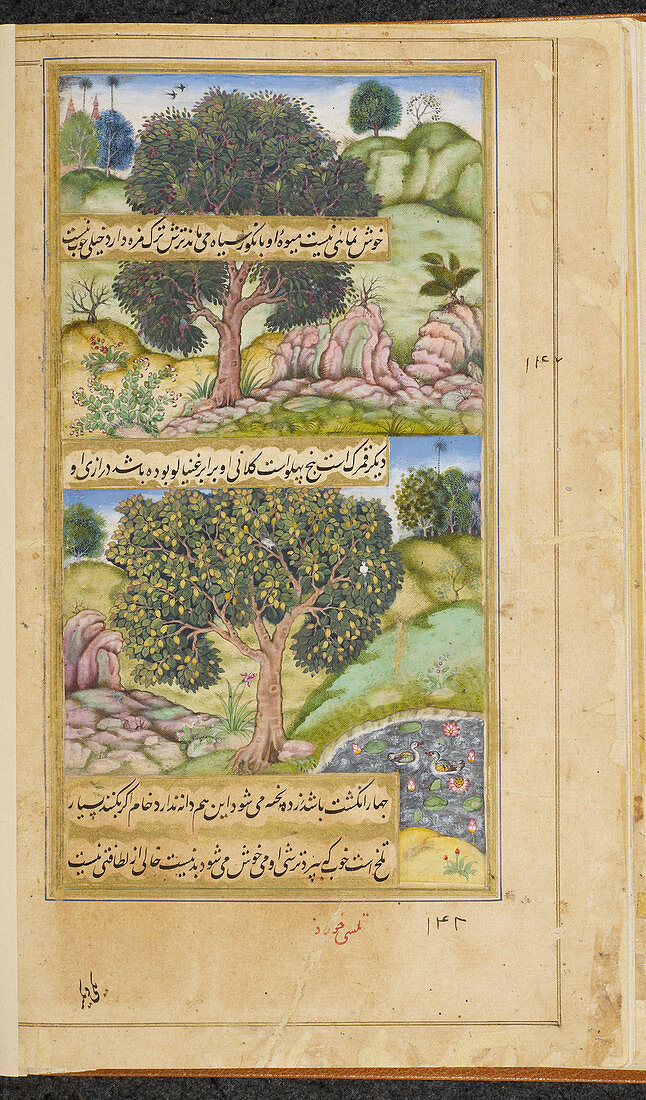 خوش نمائی نیست میوهٔ او بانگور سیاه می ماند ترش ترک مزه دارد خیلی خوب نیست
دیگر قمرک است پنج پهلو است کلانی او برابر غنیالو بوده باشد درازی او
۱۴۲
چهار انگشت باشد زرد پخته می شود این هم دانه ندارد خام اگر بکنند بسیار
تلخ است خوب که بپزد ترشی او می خوش می شود بد نیست خالی از لطافتی نیست
۱۴۲
تلسی خورد